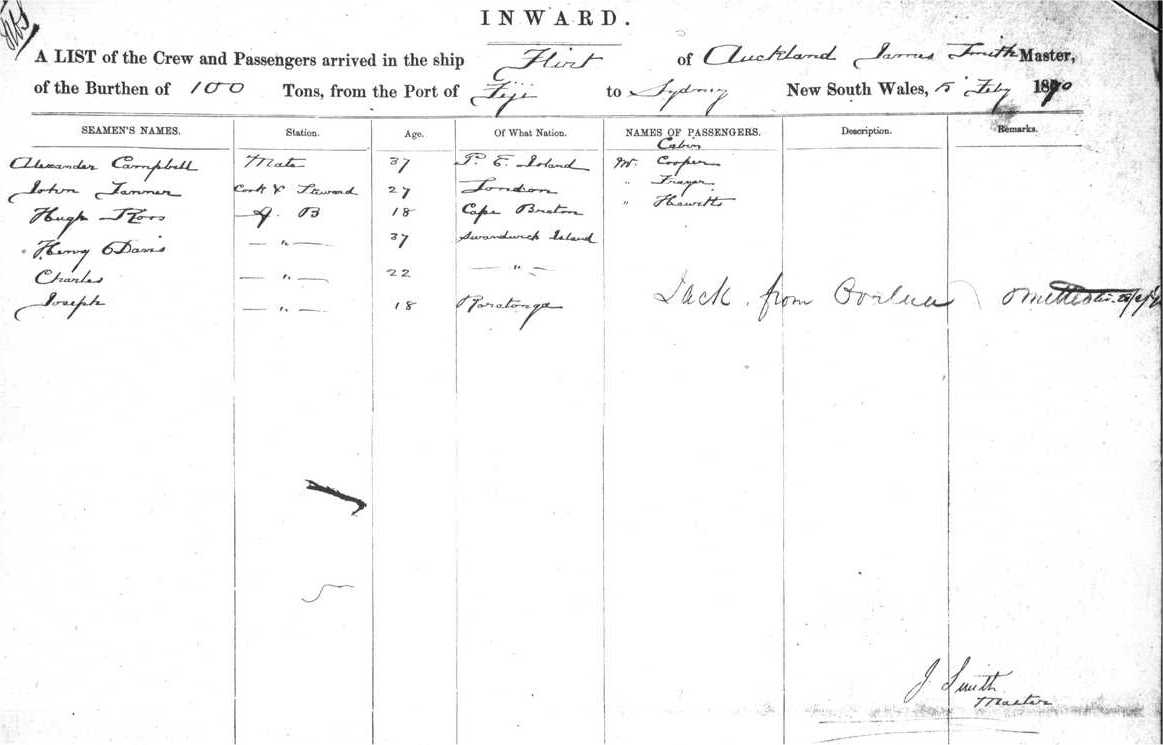 INWARD.
A LIST of the Crew and Passengers arrived in the ship Flirt of Auckland James Smith Master,
of the Burthen of 100 Tons, from the Port of Fiji to Sydney New South Wales, 5 Feby 1870
SEAMEN'S NAMES. Station. Age. Of What Nation. NAMES OF PASSENGERS. Description. Remarks.
Cabin
Alexander Campbell Mate 37 P. E. Island Mr. Cooper
John Tanner Cook & Steward 27 London " Frayer
Hugh Ross A. B 18 Cape Breton " Hewitts
Henry Davis — " — 37 Swandwich Island
Charles — " — 22 — " —
Joseph — " — 18 Raratonga Jack from omitted
J Smith
Master